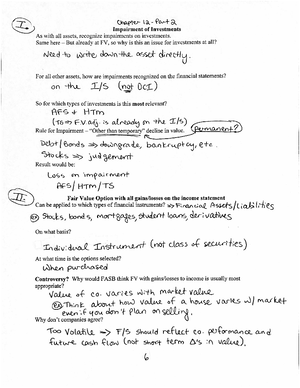 I.
Chapter 12 - Part 2
Impairment of Investments
As with all assets, recognize impairments on investments.
Same here – But already at FV, so why is this an issue for investments at all?
Need to write down the asset directly.
For all other assets, how are impairments recognized on the financial statements?
on the I/S (not OCI)
So for which types of investments is this most relevant?
AFS + HTM
(TS → F.V. adj. is already on the I/S)
Rule for Impairment – "Other than temporary" decline in value. (permanent?)
Debt/Bonds ⇒ downgrade, bankruptcy, etc.
Stocks ⇒ judgement
Result would be:
Loss on impairment
AFS/HTM/TS
II.
Fair Value Option with all gains/losses on the income statement
Can be applied to which types of financial instruments? ⇒ Financial Assets/Liabilities
EX Stocks, bonds, mortgages, student loans, derivatives
On what basis?
Individual Instrument (not class of securities)
At what time is the options selected?
When purchased
Controversy? Why would FASB think FV with gains/losses to income is usually most
appropriate?
Value of co. varies with market value
EX Think about how value of a house varies w/ market
even if you don't plan on selling.
Why don't companies agree?
Too Volatile → F/S should reflect co. performance and
future cash flow (not short term Δ's in value).
6